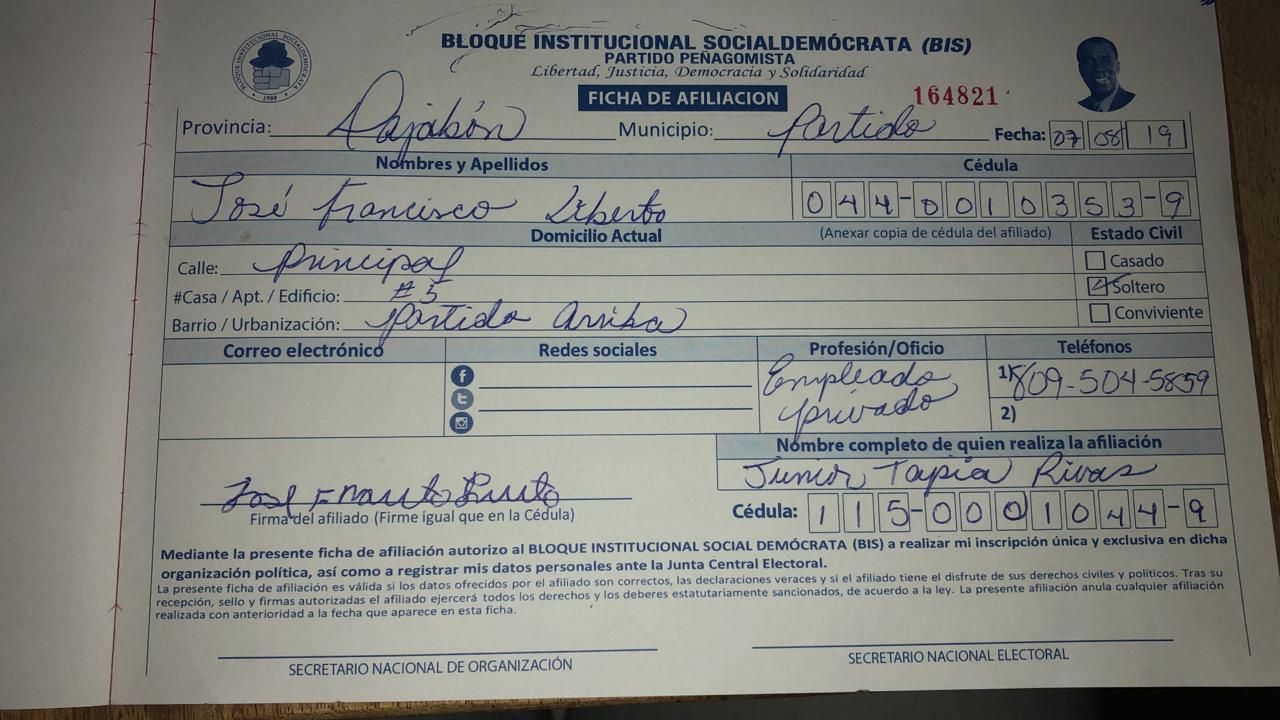 BLOQUE INSTITUCIONAL SOCIALDEMÓCRATA (BIS)
PARTIDO PEÑAGOMISTA
Libertad, Justicia, Democracia y Solidaridad
BLOQUE INSTITUCIONAL SOCIALDEMOCRATA
1989
FICHA DE AFILIACION
164821
Provincia: Dajabón Municipio: Partido Fecha: 07 08 19
Nombres y Apellidos Cédula
José Francisco Liberto 044-0010353-9
Domicilio Actual (Anexar copia de cédula del afiliado) Estado Civil
Calle: Principal Casado
#Casa / Apt. / Edificio: #5 Soltero
Barrio / Urbanización: Partido Arriba Conviviente
Correo electrónico Redes sociales Profesión/Oficio Teléfonos
Empleado privado
1) 809-504-5859
2)
Nombre completo de quien realiza la afiliación
Junior Tapia Rivas
Firma del afiliado (Firme igual que en la Cédula)
Cédula: 115-0001044-9
Mediante la presente ficha de afiliación autorizo al BLOQUE INSTITUCIONAL SOCIAL DEMÓCRATA (BIS) a realizar mi inscripción única y exclusiva en dicha
organización política, así como a registrar mis datos personales ante la Junta Central Electoral.
La presente ficha de afiliación es válida si los datos ofrecidos por el afiliado son correctos, las declaraciones veraces y si el afiliado tiene el disfrute de sus derechos civiles y políticos. Tras su
recepción, sello y firmas autorizadas el afiliado ejercerá todos los derechos y los deberes estatutariamente sancionados, de acuerdo a la ley. La presente afiliación anula cualquier afiliación
realizada con anterioridad a la fecha que aparece en esta ficha.
SECRETARIO NACIONAL DE ORGANIZACIÓN SECRETARIO NACIONAL ELECTORAL